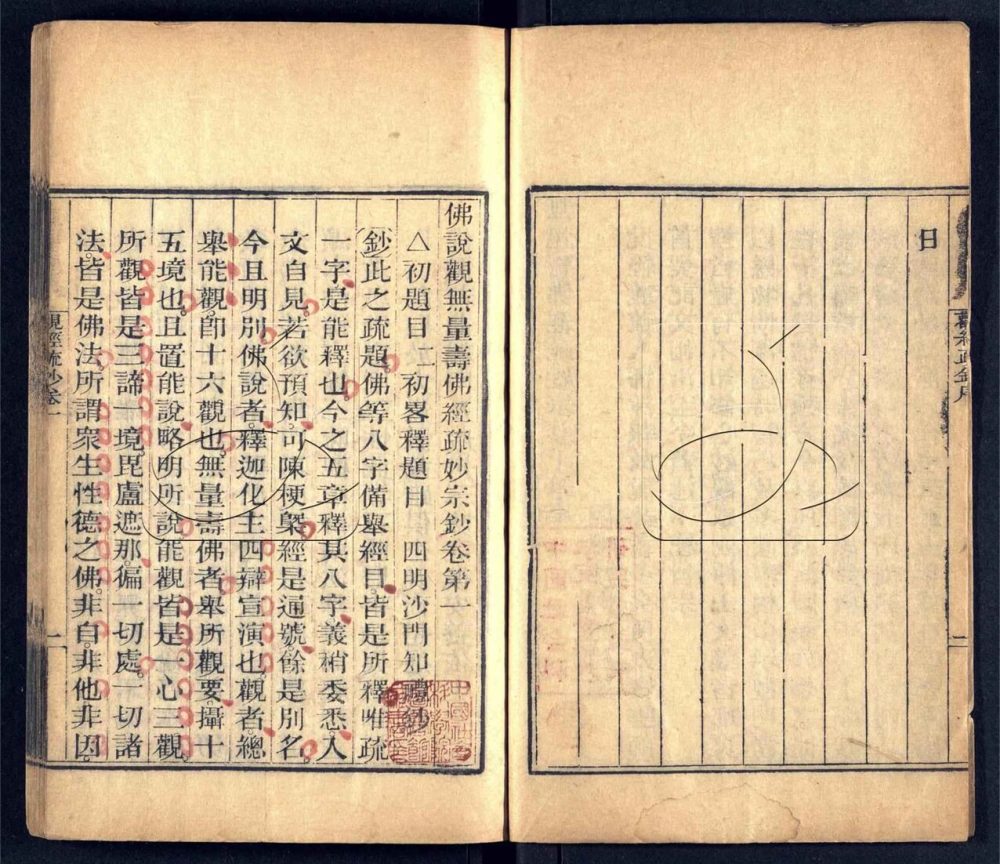 日
觀經疏鈔序
二
佛說觀無量壽佛經疏妙宗鈔卷第一
△初題目二初畧釋題目 四明沙門知禮鈔
鈔此之疏題佛等八字備舉經目皆是所釋唯疏
一字是能釋也今之五章釋其八字義稍委悉人
文自見若欲預知可陳梗槩經是通號餘是別名
今且明別佛說者釋迦化主四辯宣演也觀者總
舉能觀卽十六觀也無量壽佛者舉所觀要攝十
五境也且置能說略明所說能觀皆是一心三觀
所觀皆是三諦一境毘盧遮那徧一切處一切諸
法皆是佛法所謂衆生性德之佛非自非他非因
觀經疏鈔卷一
一